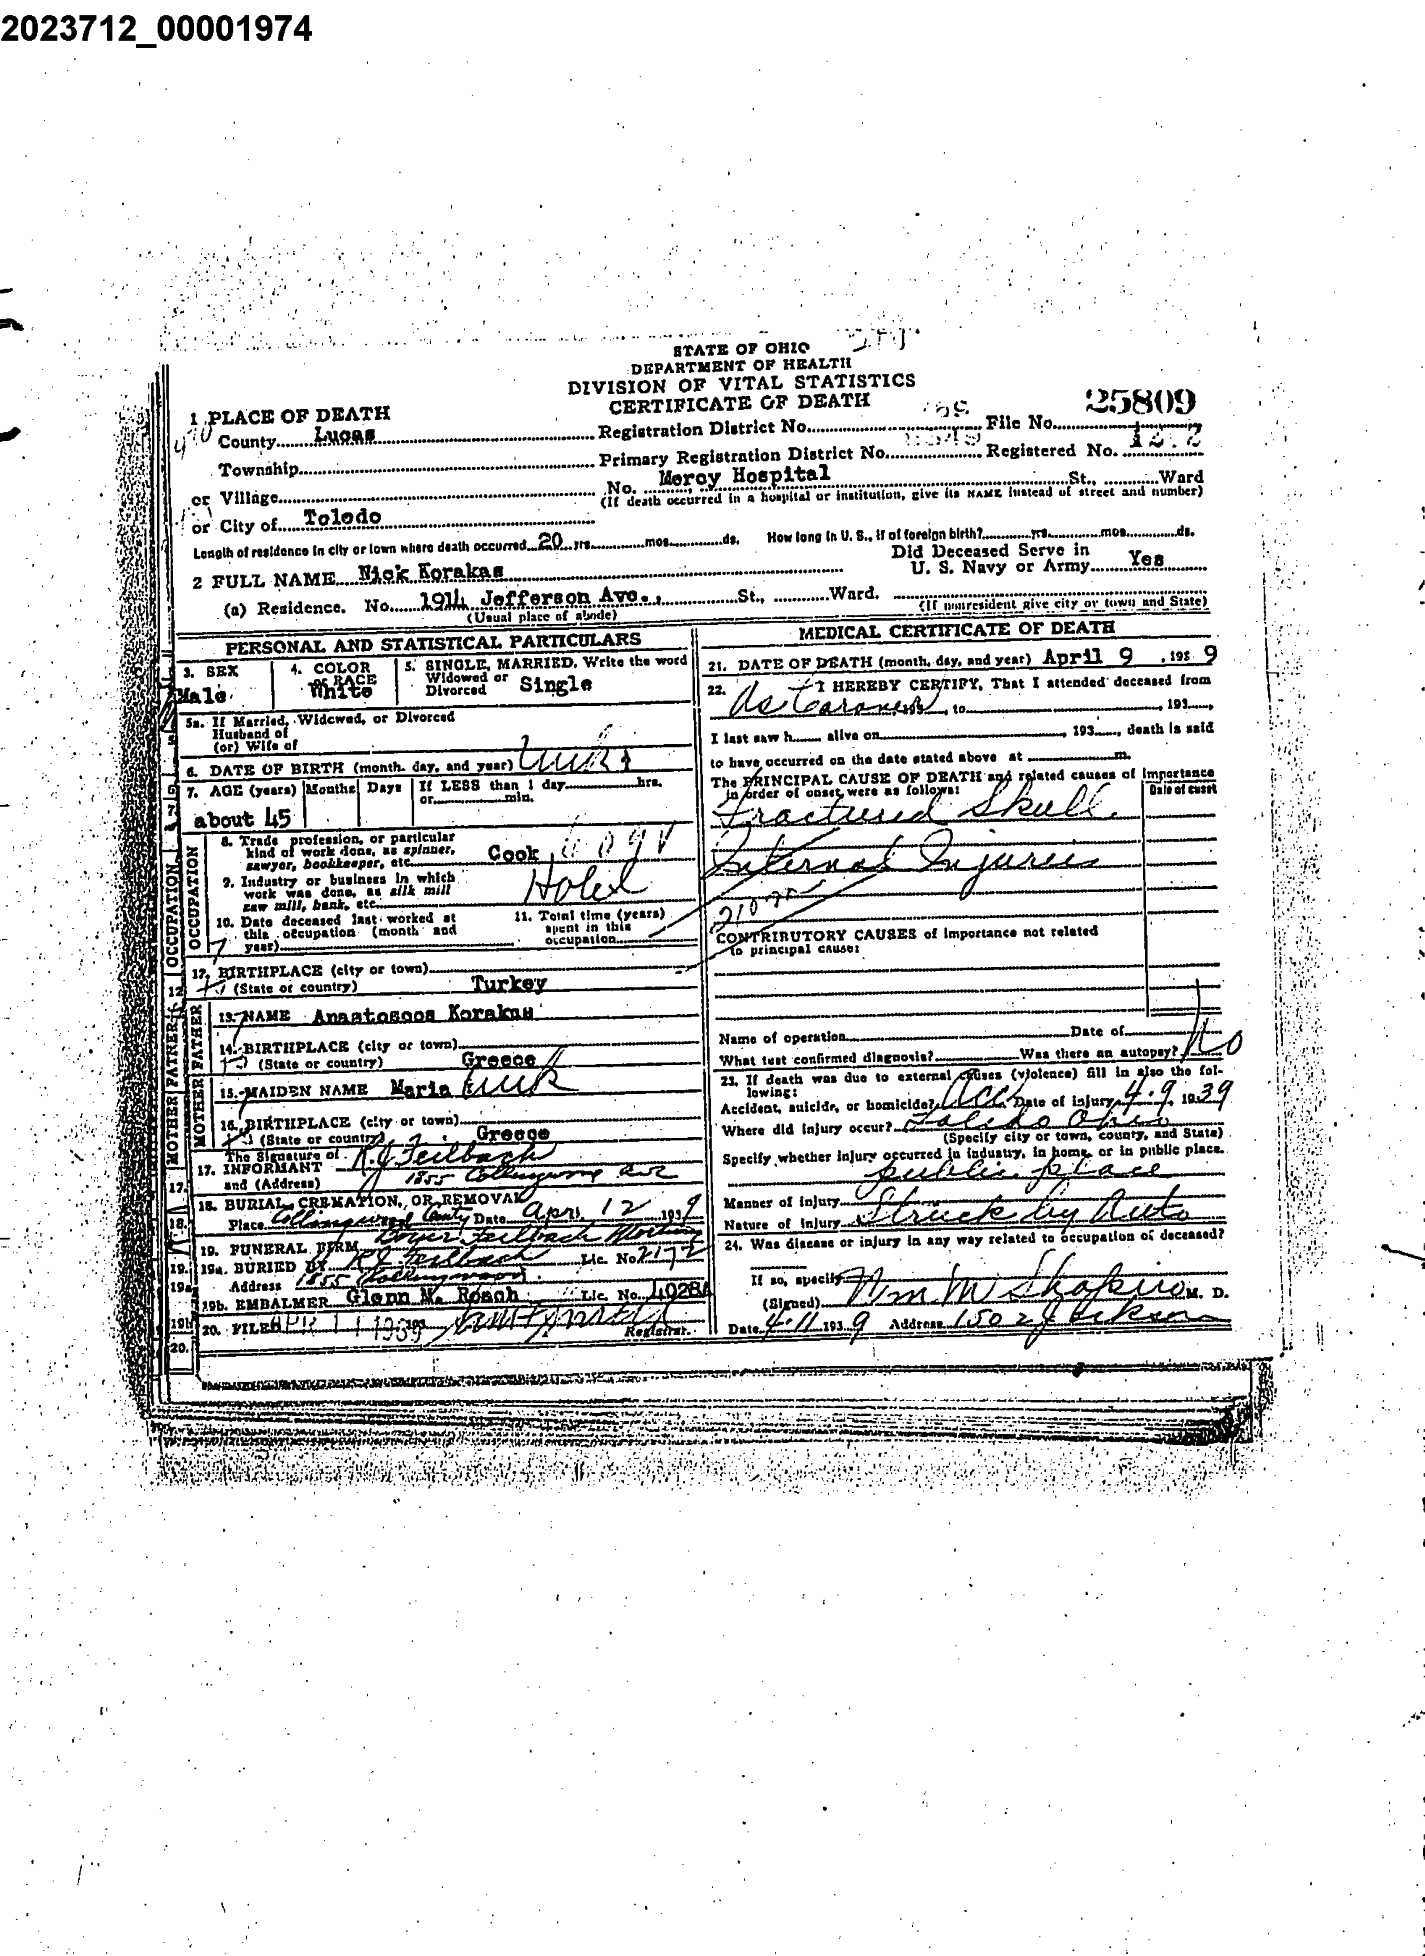 2023712_00001974
STATE OF OHIO
DEPARTMENT OF HEALTH
DIVISION OF VITAL STATISTICS
CERTIFICATE OF DEATH
25809
1 PLACE OF DEATH
County Lucas Registration District No. File No.
Township Primary Registration District No. Registered No.
or Village No. Mercy Hospital St., Ward
(If death occurred in a hospital or institution, give its NAME instead of street and number)
or City of Toledo
Length of residence in city or town where death occurred 20 yrs. mos. ds. How long in U. S., if of foreign birth? yrs. mos. ds.
2 FULL NAME Nick Korakas Did Deceased Serve in U. S. Navy or Army Yes
(a) Residence. No. 1914 Jefferson Ave., St., Ward.
(Usual place of abode) (If nonresident give city or town and State)
PERSONAL AND STATISTICAL PARTICULARS
3. SEX Male
4. COLOR or RACE White
5. SINGLE, MARRIED, Write the word Widowed or Divorced Single
5a. If Married, Widowed, or Divorced
Husband of
(or) Wife of
6. DATE OF BIRTH (month, day, and year) Unk
7. AGE (years) Months Days If LESS than 1 day hrs. or min.
about 45
OCCUPATION
8. Trade, profession, or particular
kind of work done, as spinner,
sawyer, bookkeeper, etc. Cook
9. Industry or business in which
work was done, as silk mill
saw mill, bank, etc. Hotel
10. Date deceased last worked at
this occupation (month and
year)
11. Total time (years)
spent in this
occupation
12. BIRTHPLACE (city or town)
(State or country) Turkey
FATHER
13. NAME Anastosoos Korakas
14. BIRTHPLACE (city or town)
(State or country) Greece
MOTHER
15. MAIDEN NAME Maria Unk
16. BIRTHPLACE (city or town)
(State or country) Greece
17. The Signature of INFORMANT R. J. Feilbach
and (Address) 1855 Collingwood Ave
18. BURIAL, CREMATION, OR REMOVAL
Place Date Apr. 12 1939
19. FUNERAL FIRM Boyer Feilbach Mortuary
19a. BURIED BY R J Feilbach Lic. No. 2172
Address 1855 Collingwood
19b. EMBALMER Glenn M. Roach Lic. No. 4028A
20. FILED APR 11 1939 Registrar.
MEDICAL CERTIFICATE OF DEATH
21. DATE OF DEATH (month, day, and year) April 9, 1939
22. I HEREBY CERTIFY, That I attended deceased from
As Coroner, to 193
I last saw h alive on 193, death is said
to have occurred on the date stated above at m.
The PRINCIPAL CAUSE OF DEATH and related causes of Importance
in order of onset were as follows: Date of onset
Fractured Skull
Internal Injuries
CONTRIBUTORY CAUSES of importance not related
to principal cause:
Name of operation Date of
What test confirmed diagnosis? Was there an autopsy? No
23. If death was due to external causes (violence) fill in also the following:
Accident, suicide, or homicide? Acc Date of injury 4-9, 1939
Where did injury occur? Toledo Ohio
(Specify city or town, county, and State)
Specify whether injury occurred in industry, in home, or in public place.
public place
Manner of injury
Nature of injury Struck by Auto
24. Was disease or injury in any way related to occupation of deceased?
If so, specify
(Signed) Wm M Shapiro M. D.
Date 4-11 1939 Address 1502 Jackson